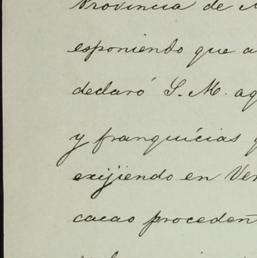 Provincia de
esponiendo que a
declaró S. M. aq
y franquicias q
exijiendo en Ver
cacao proceden